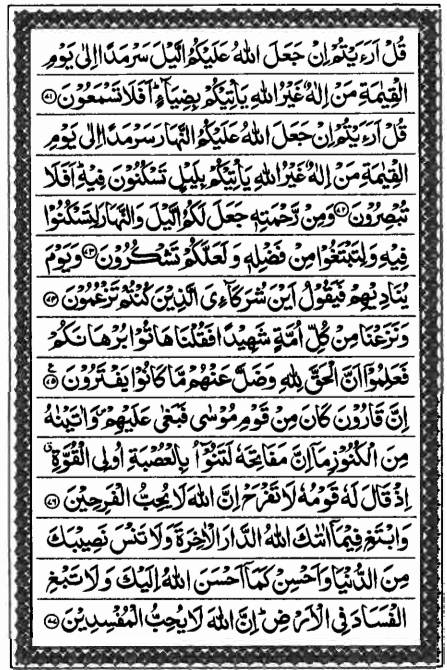 قُلْ اَرَءَيْتُمْ اِنْ جَعَلَ اللّٰهُ عَلَيْكُمُ الَّيْلَ سَرْمَدًا اِلٰى يَوْمِ
الْقِيٰمَةِ مَنْ اِلٰهٌ غَيْرُ اللّٰهِ يَاْتِيْكُمْ بِضِيَآءٍ ؕ اَفَلَا تَسْمَعُوْنَ ﴿۷۱﴾
قُلْ اَرَءَيْتُمْ اِنْ جَعَلَ اللّٰهُ عَلَيْكُمُ النَّهَارَ سَرْمَدًا اِلٰى يَوْمِ
الْقِيٰمَةِ مَنْ اِلٰهٌ غَيْرُ اللّٰهِ يَاْتِيْكُمْ بِلَيْلٍ تَسْكُنُوْنَ فِيْهِ ؕ اَفَلَا
تُبْصِرُوْنَ ﴿۷۲﴾ وَمِنْ رَّحْمَتِهٖ جَعَلَ لَكُمُ الَّيْلَ وَالنَّهَارَ لِتَسْكُنُوْا
فِيْهِ وَلِتَبْتَغُوْا مِنْ فَضْلِهٖ وَلَعَلَّكُمْ تَشْكُرُوْنَ ﴿۷۳﴾ وَيَوْمَ
يُنَادِيْهِمْ فَيَقُوْلُ اَيْنَ شُرَكَآءِيَ الَّذِيْنَ كُنْتُمْ تَزْعُمُوْنَ ﴿۷۴﴾
وَنَزَعْنَا مِنْ كُلِّ اُمَّةٍ شَهِيْدًا فَقُلْنَا هَاتُوْا بُرْهَانَكُمْ
فَعَلِمُوْۤا اَنَّ الْحَقَّ لِلّٰهِ وَضَلَّ عَنْهُمْ مَّا كَانُوْا يَفْتَرُوْنَ ﴿۷۵﴾
اِنَّ قَارُوْنَ كَانَ مِنْ قَوْمِ مُوْسٰى فَبَغٰى عَلَيْهِمْ ۪ وَاٰتَيْنٰهُ
مِنَ الْكُنُوْزِ مَاۤ اِنَّ مَفَاتِحَهٗ لَتَنُوْٓاُ بِالْعُصْبَةِ اُولِي الْقُوَّةِ ۗ
اِذْ قَالَ لَهٗ قَوْمُهٗ لَا تَفْرَحْ اِنَّ اللّٰهَ لَا يُحِبُّ الْفَرِحِيْنَ ﴿۷۶﴾
وَابْتَغِ فِيْمَاۤ اٰتٰىكَ اللّٰهُ الدَّارَ الْاٰخِرَةَ وَلَا تَنْسَ نَصِيْبَكَ
مِنَ الدُّنْيَا وَاَحْسِنْ كَمَاۤ اَحْسَنَ اللّٰهُ اِلَيْكَ وَلَا تَبْغِ
الْفَسَادَ فِي الْاَرْضِ ؕ اِنَّ اللّٰهَ لَا يُحِبُّ الْمُفْسِدِيْنَ ﴿۷۷﴾